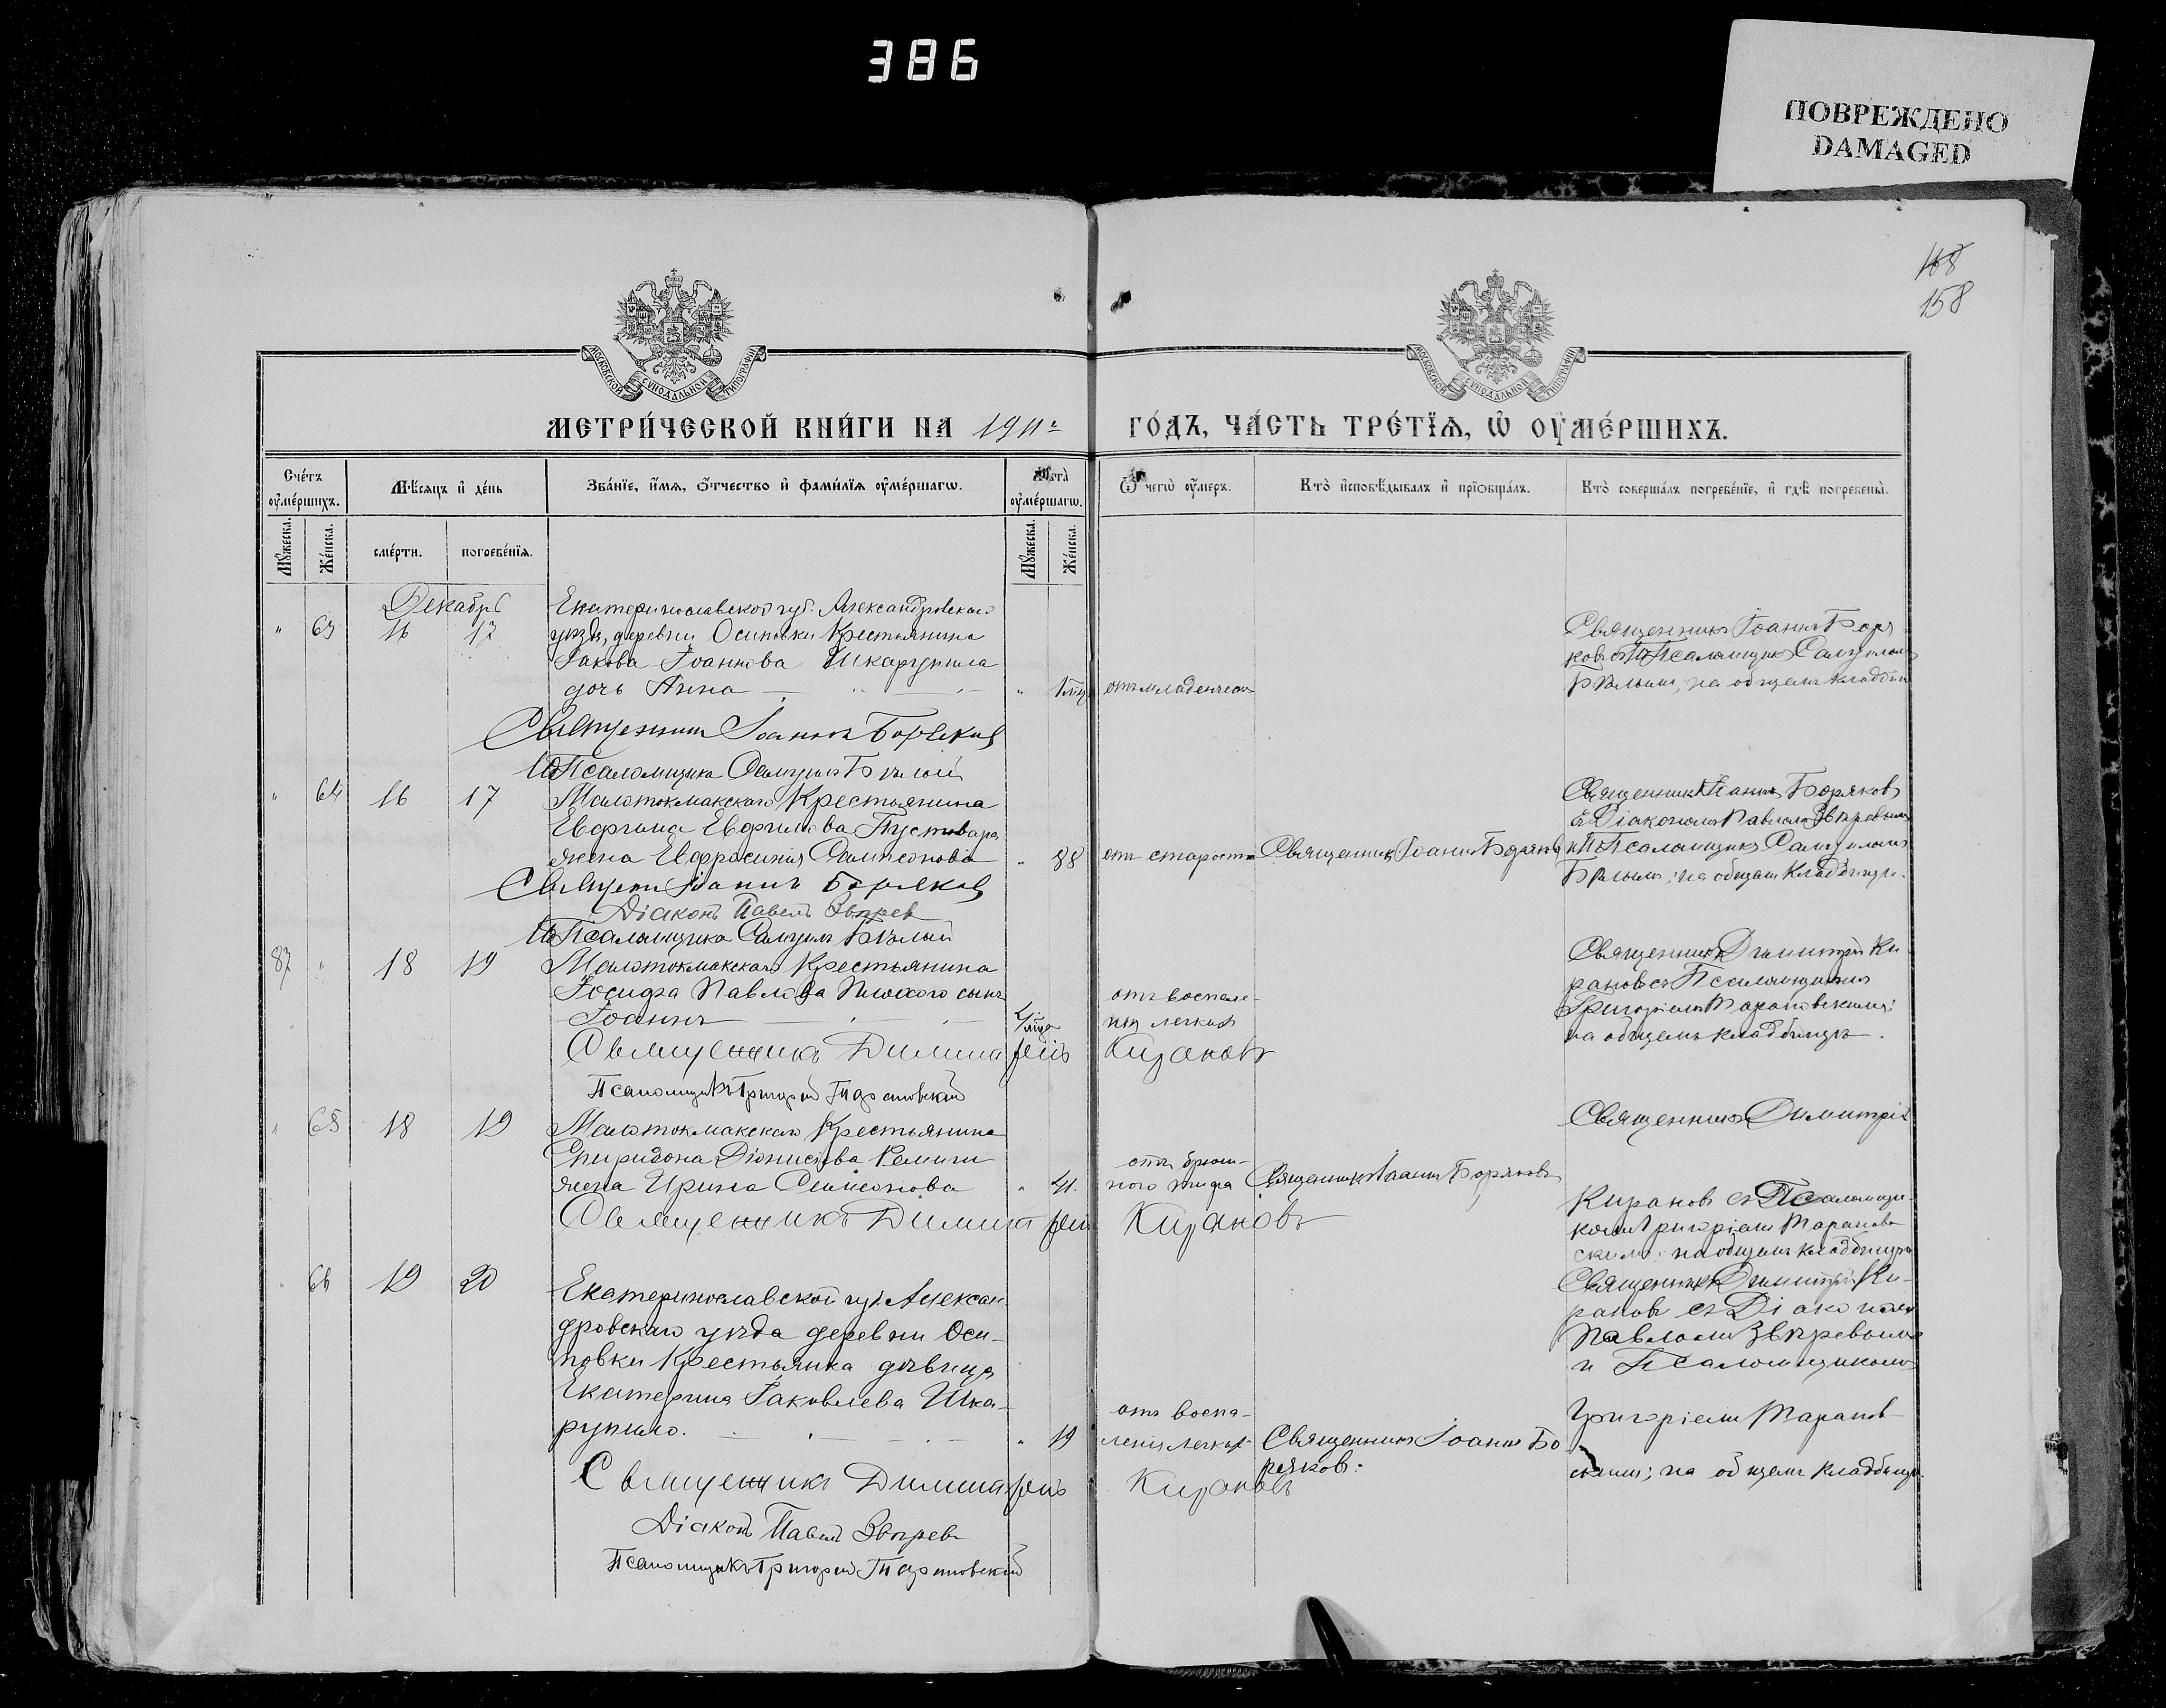 386
ПОВРЕЖДЕНО
DAMAGED
168
158
МОСКОВСКОЙ СУНОДАЛЬНОЙ ТИПОГРАФІИ
МОСКОВСКОЙ СУНОДАЛЬНОЙ ТИПОГРАФІИ
МЕТРИ́ЧЕСКОЙ КНИ́ГИ НА 1911 г.
ГО́ДЪ, ЧА́СТЬ ТРЕ́ТЇѦ, Ѡ ОУ҆МЕ́РШИХЪ.
Сче́тъ оу҆ме́ршихъ.
Мѣ́сяцъ и҆ де́нь
Зва́нїе, и҆́мѧ, ѻ҆́тчество и҆ фами́лїѧ оу҆ме́ршагѡ.
Лѣта̀ оу҆ме́ршагѡ.
Ѿ чегѡ̀ оу҆́меръ.
Кто̀ и҆сповѣ́дывалъ и҆ прїѡбща́лъ.
Кто̀ соверша́лъ погребе́нїе, и҆ гдѣ̀ погребены̀.
Мꙋ́жеска.
Же́нска.
сме́рти.
погребе́нїѧ.
Мꙋ́жеска.
Же́нска.
Декабрь
" 63 16 17
Екатеринославской губ. Александровскаго
уѣзда, деревни Осиповки Крестьянина
Іакова Іоаннова Шкарупила
дочь Анна
" 1 мѣц.
отъ младенческ.
Священникъ Іоаннъ Боря
ковъ съ Псаломщик. Самуилом
Бѣлымъ; на общемъ кладбищ
Священникъ Іоаннъ Боряковъ
Псаломщика Самуилъ Бѣлый
" 64 16 17
Малотокмакскаго Крестьянина
Евфима Евфимова Пустовара
жена Евфросинія Сампсонова
" 88
отъ старости
Священникъ Іоаннъ Боряковъ
Священникъ Іоаннъ Боряковъ
съ Діакономъ Павломъ Звѣревымъ
и Псаломщик. Самуиломъ
Бѣлымъ; на общемъ Кладбищѣ.
Священ. Іоаннъ Боряковъ
Діаконъ Павелъ Звѣрев
Псаломщика Самуилъ Бѣлый
87 " 18 19
Малотокмакскаго Крестьянина
Іосифа Павлова Плохого сынъ
Іоаннъ
4 мѣца
отъ воспале-
нія легкихъ
Священникъ Димитрій Ки-
рановъ съ Псаломщикомъ
Григоріемъ Тарановскимъ;
на общемъ кладбищѣ.
Священникъ Димитрій Кирановъ
Псаломщикъ Григорій Тарановскій
" 65 18 19
Малотокмакскаго Крестьянина
Спиридона Діонисіева Ремиги
жена Ирина Симеонова
" 41.
отъ брюш-
ного тифа
Священникъ Іоаннъ Боряковъ
Священникъ Димитрій
Кирановъ съ Псаломщи-
комъ Григоріемъ Таранов-
скимъ; на общемъ кладбищѣ
Священникъ Димитрій Кирановъ
" 66 19 20
Екатеринославской губ. Алексан-
дровскаго уѣзда деревни Оси-
повки Крестьянка дѣвица
Екатерина Іаковлева Шка-
рупило.
" 19
отъ воспа-
ленія легких
Священникъ Іоаннъ Бо-
ряковъ.
Священникъ Димитрій Ки-
рановъ съ Діакономъ
Павломъ Звѣревымъ
и Псаломщикомъ
Григоріемъ Таранов-
скимъ; на общемъ кладбищѣ.
Священникъ Димитрій Кирановъ
Діаконъ Павелъ Звѣрев
Псаломщикъ Григорій Тарановскій